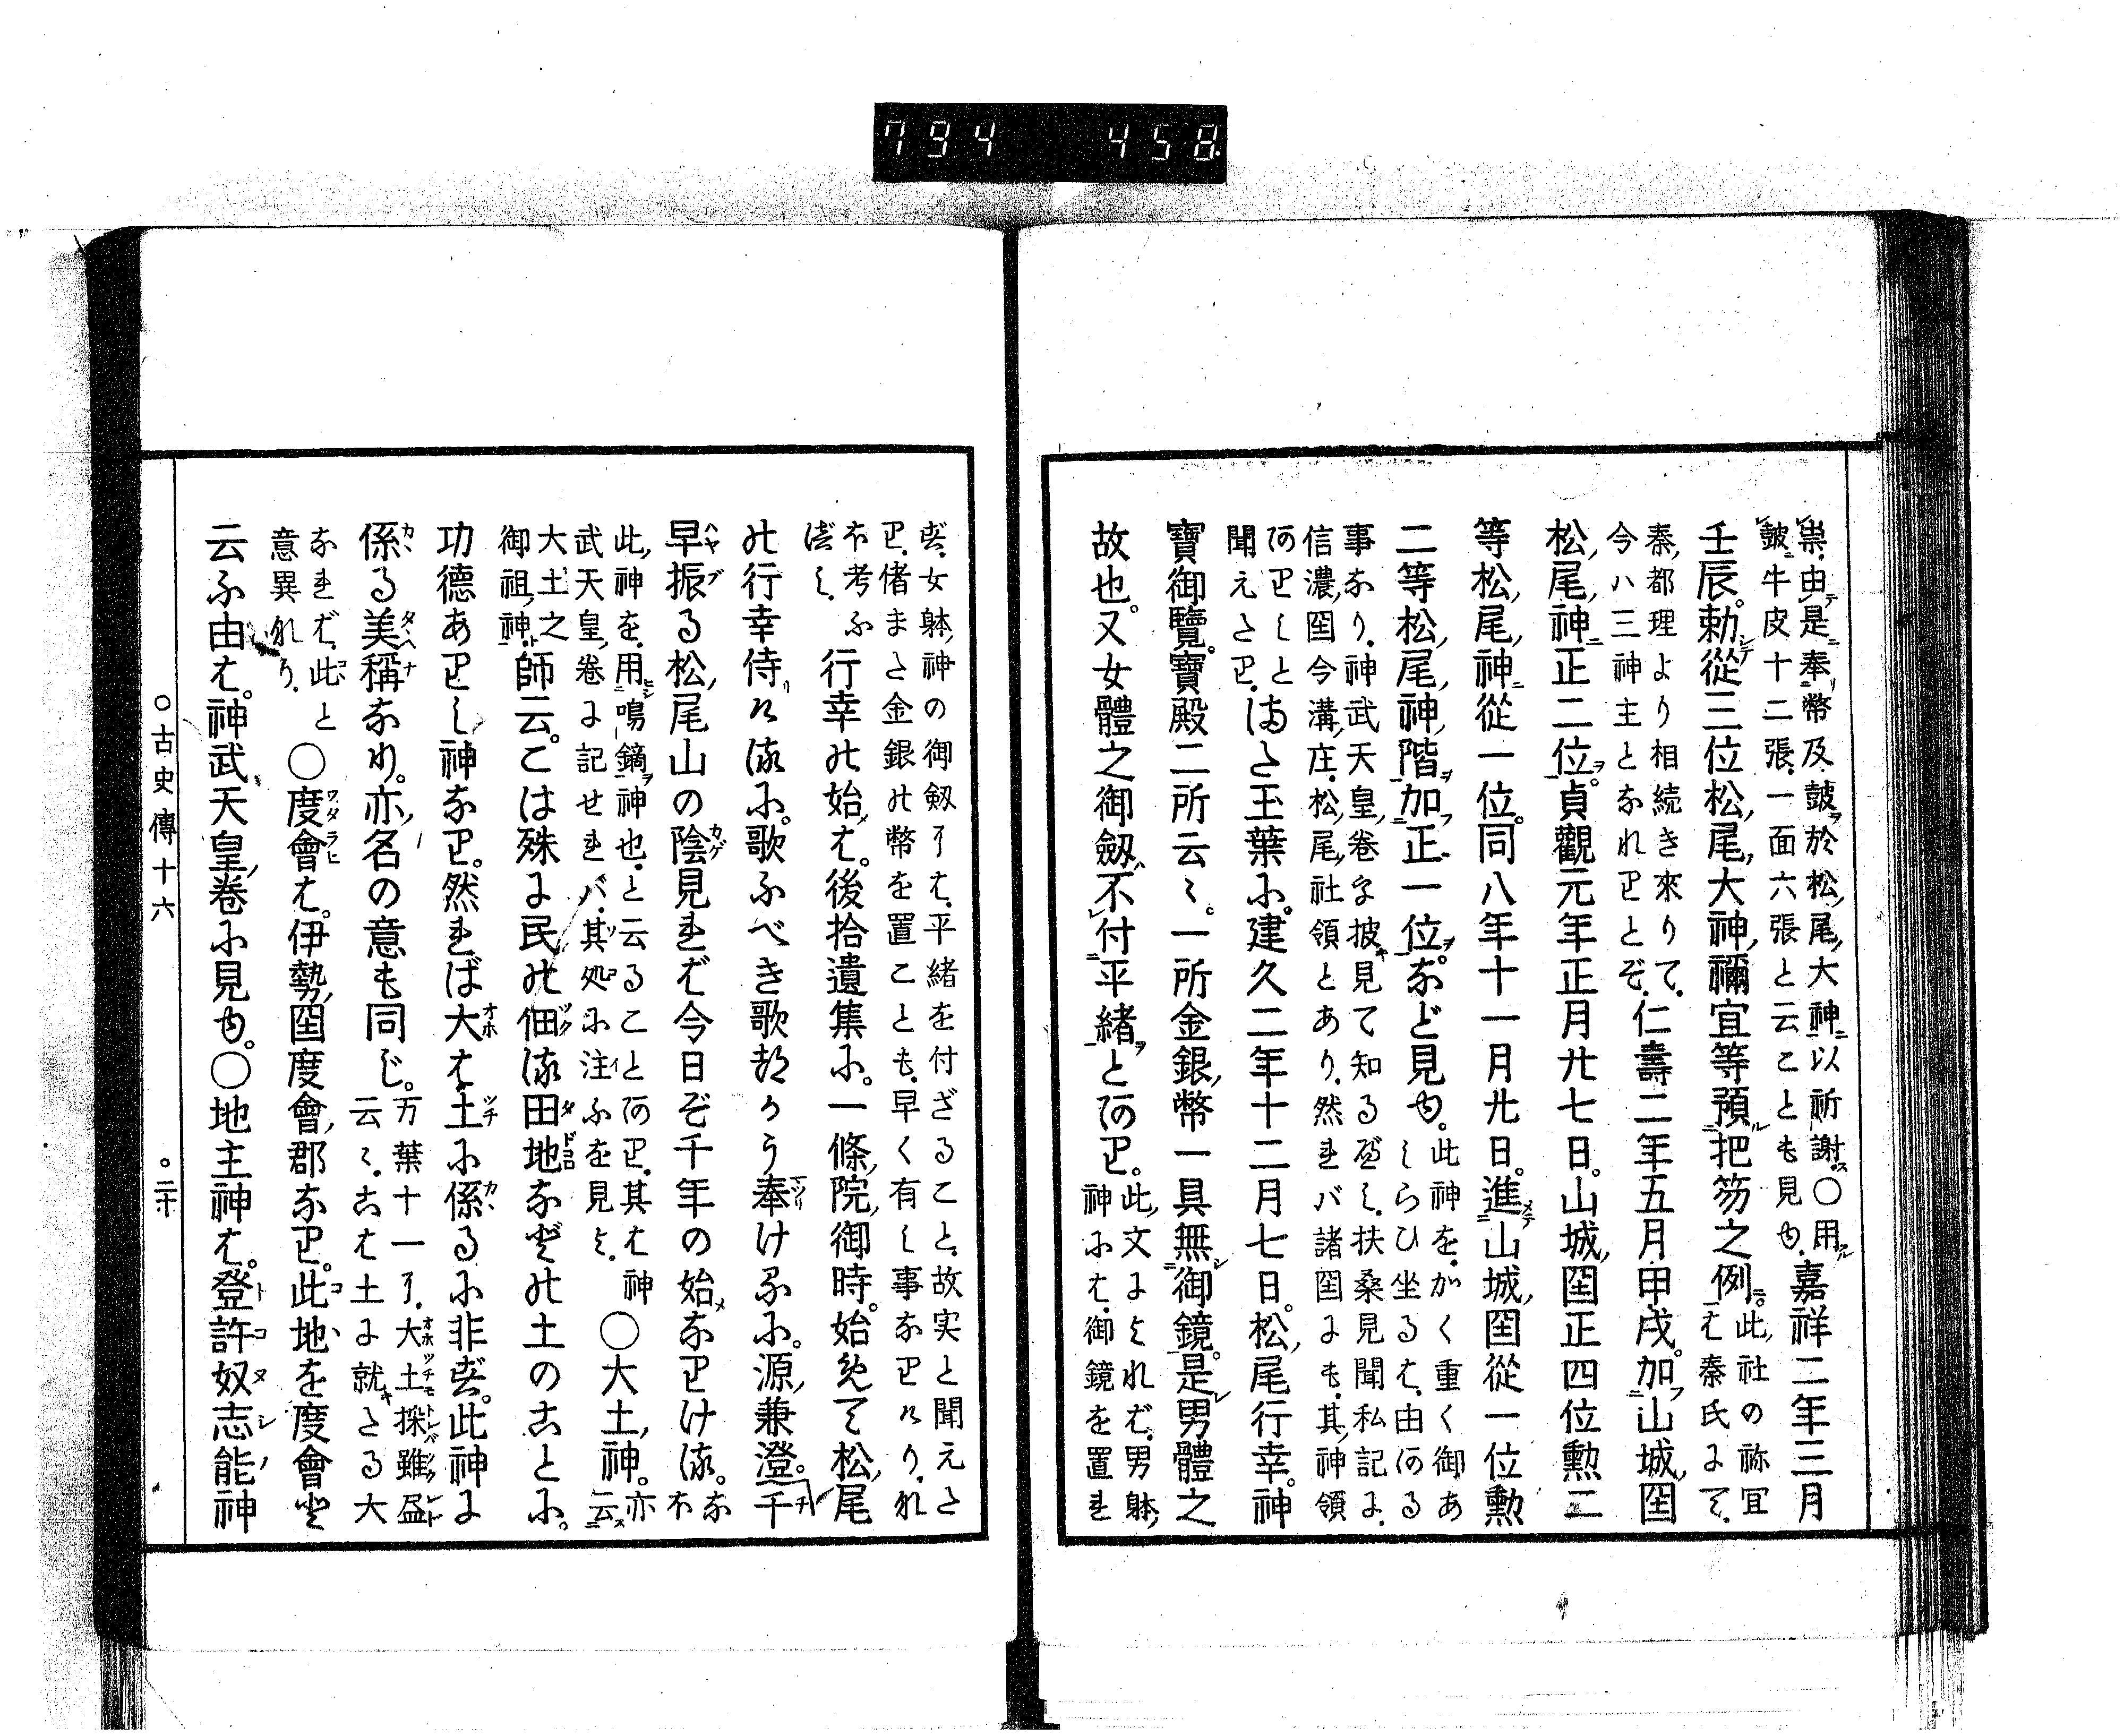 794 458
祟。由是奉幣及皷於松尾大神以祈謝。○用
皷牛皮十二張。一面六張と云ことも見ゆ。嘉祥二年三月
壬辰。勅從三位松尾大神禰宜等預把笏之例。此社の祢宜
は秦氏にて。
秦都理より相続き來りて。
今ハ三神主となれりとぞ。仁壽二年五月甲戌。加山城囯
松尾神正二位。貞觀元年正月廿七日。山城囯正四位勲二
等松尾神從一位。同八年十一月廿日。進山城囯從一位勲
二等松尾神階加正一位。など見ゆ。此神を。かく重く御あ
しらひ坐るは。由ある
事なり。神武天皇卷を披見て知るべし。扶桑見聞私記に。
信濃囯今溝庄。松尾社領とあり。然れバ諸囯にも。其神領
ありしと
聞えたり。はた玉葉に。建久二年十二月七日。松尾行幸。神
寶御覽。寶殿二所云々。一所金銀幣一具無御鏡。是男體之
故也。又女體之御劔不付平緒とあり。此文によれば。男躰
神には。御鏡を置れ
ず。女躰神の御劔には。平緒を付ざること。故実と聞えた
り。偖また金銀の幣を置ことも。早く有し事なりけり。れ
ほ考ふ
べし。行幸の始は。後拾遺集に。一條院御時。始めて松尾
の行幸侍りけるに。歌ふべき歌都かう奉けるに。源兼澄。千
早振る松尾山の陰見れば今日ぞ千年の始なりける。な
ほ
此神を。用鳴鏑神也。と云ることあり。其は神
武天皇卷に記せれバ。其処に注ふを見よ。○大土神。亦云
大土之
御祖神。師云。こは殊に民の佃る田地などの土のことに。
功德ありし神なり。然れば大は土に係るに非ず。此神に
係る美稱なり。亦名の意も同じ。万葉十一に。大土採雖盡
云々。こは土に就たる大
なれば。此と
意異れり。○度會は。伊勢囯度會郡なり。此地を度會と
云ふ由は。神武天皇卷に見ゆ。○地主神は。登許奴志能神
○古史傳十六
○二十